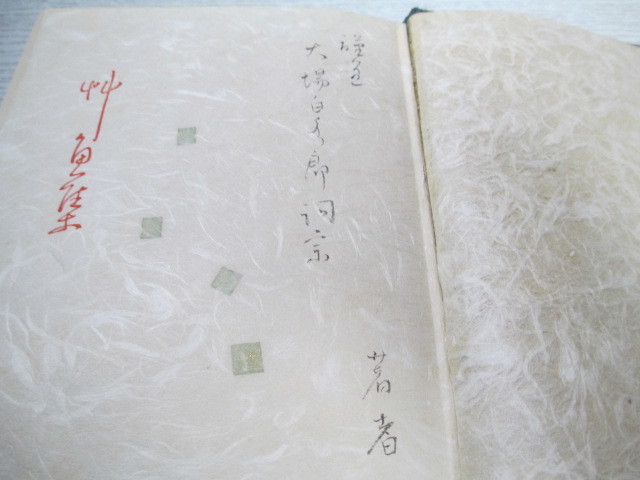 謹呈
大場白水郎詞宗
著者
艸魚集